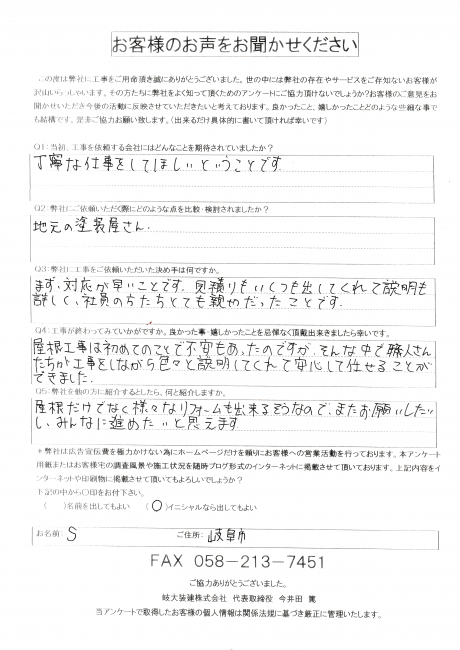 お客様のお声をお聞かせください
この度は弊社に工事をご用命頂き誠にありがとうございました。世の中には弊社の存在やサービスをご存知ないお客様が
沢山いらっしゃいます。その方たちに弊社をよく知って頂くためのアンケートにご協力頂けないでしょうか?お客様のご意見をお
聞かせいただき今後の活動に反映させていただきたいと考えております。良かったこと、嬉しかったことどのような些細な事で
も結構です。是非ご協力お願い致します。(出来るだけ具体的に書いて頂ければ幸いです)
Q1:当初、工事を依頼する会社にはどんなことを期待されていましたか?
丁寧な仕事をしてほしいということです。
Q2:弊社にご依頼いただく際にどのような点を比較・検討されましたか?
地元の塗装屋さん。
Q3:弊社に工事をご依頼いただいた決め手は何ですか。
まず、対応が早いことです。見積りもいくつも出してくれて説明も
詳しく、社員の方たちとても親やかだったことです。
Q4:工事が終わってみていかがですか。良かった事・嬉しかったことを忌憚なく頂戴出来ましたら幸いです。
屋根工事は初めてのことで不安もあったのですが、そんな中で職人さん
たちが工事をしながら色々と説明してくれて安心して任せることが
できました。
Q5:弊社を他の方に紹介するとしたら、何と紹介しますか。
屋根だけでなく様々なリフォームも出来るそうなので、またお願いしたい
し、みんなに進めたいと思えます。
*弊社は広告宣伝費を極力かけない為にホームページだけを頼りにお客様への営業活動を行っております。本アンケート
用紙またはお客様宅の調査風景や施工状況を随時ブログ形式のインターネットに掲載させて頂いております。上記内容をイ
ンターネットや印刷物に掲載させて頂いてもよろしいでしょうか?
下記の中から○印をお付下さい。
( )名前を出してもよい (○)イニシャルなら出してもよい
お名前: S ご住所: 岐阜市
FAX 058-213-7451
ご協力ありがとうございました。
岐大装建株式会社 代表取締役 今井田 篤
当アンケートで取得したお客様の個人情報は関係法規に基づき厳正に管理いたします。